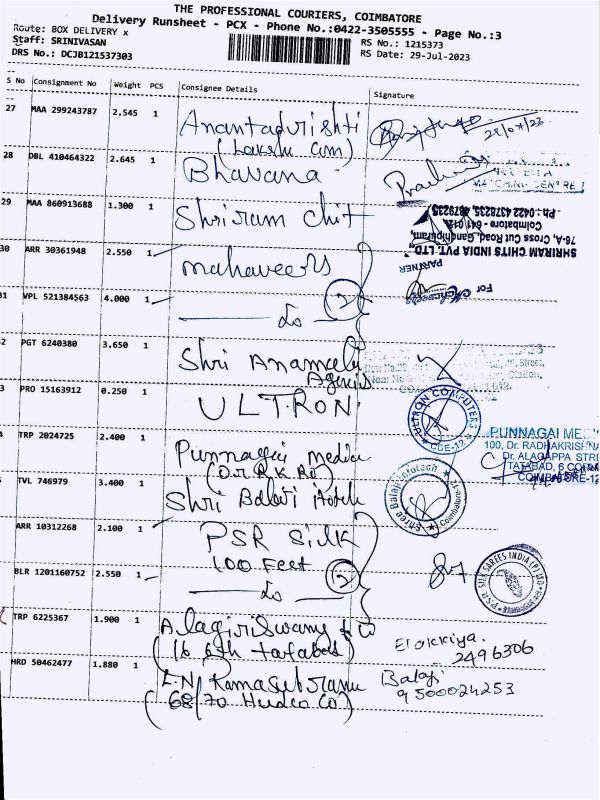 THE PROFESSIONAL COURIERS, COIMBATORE
Delivery Runsheet - PCX - Phone No.:0422-3505555 - Page No.:3
Route: BOX DELIVERY x
Staff: SRINIVASAN
RS No.: 1215373
DRS No.: DCJB121537303
RS Date: 29-Jul-2023
S No Consignment No Weight PCS Consignee Details Signature
27 MAA 299243787 2.545 1 Anantadrishti
28/07/23
28 DBL 410464322 2.645 1 Bhavana
29 MAA 860913688 1.300 1 Shriram chit
SHRIRAM CHITS INDIA PVT. LTD.,
76-A, Cross Cut Road, Gandhipuram,
Coimbatore - 641 012.
Ph : 0422 4378235, 4379235
30 ARR 30361948 2.550 1 mahaveers
For
PARTNER
31 VPL 521384563 4.000 1 do 2
2 PGT 6240380 3.650 1 Shri Anamali
Agencis
3 PRO 15163912 0.250 1 ULTRON
ULTRON COMPUTERS
CBE-12
4 TRP 2024725 2.400 1 Punnagai media
(Dr. R.K. Rd)
PUNNAGAI MEDIA
100, Dr. RADHAKRISHNA
Dr. ALAGAPPA STRE
TATABAD, 6 CORNE
COIMBATORE-12
TVL 746979 3.400 1 Shri Balaji
Shree Balaji Infotech
Coimbatore-12
ARR 10312268 2.100 1 PSR Silk
100 Feet
BLR 1201160752 2.550 1 do 2
P.S.R. SILK SAREES INDIA (P) LTD
TRP 6225367 1.900 1 Alagiriswamy
(16 6th tatabad)
Elakkiya.
2496306
HRD 50462477 1.880 1 L.N. Ramasubramu
(68/70 Hudco Co)
Balaji
9500024253